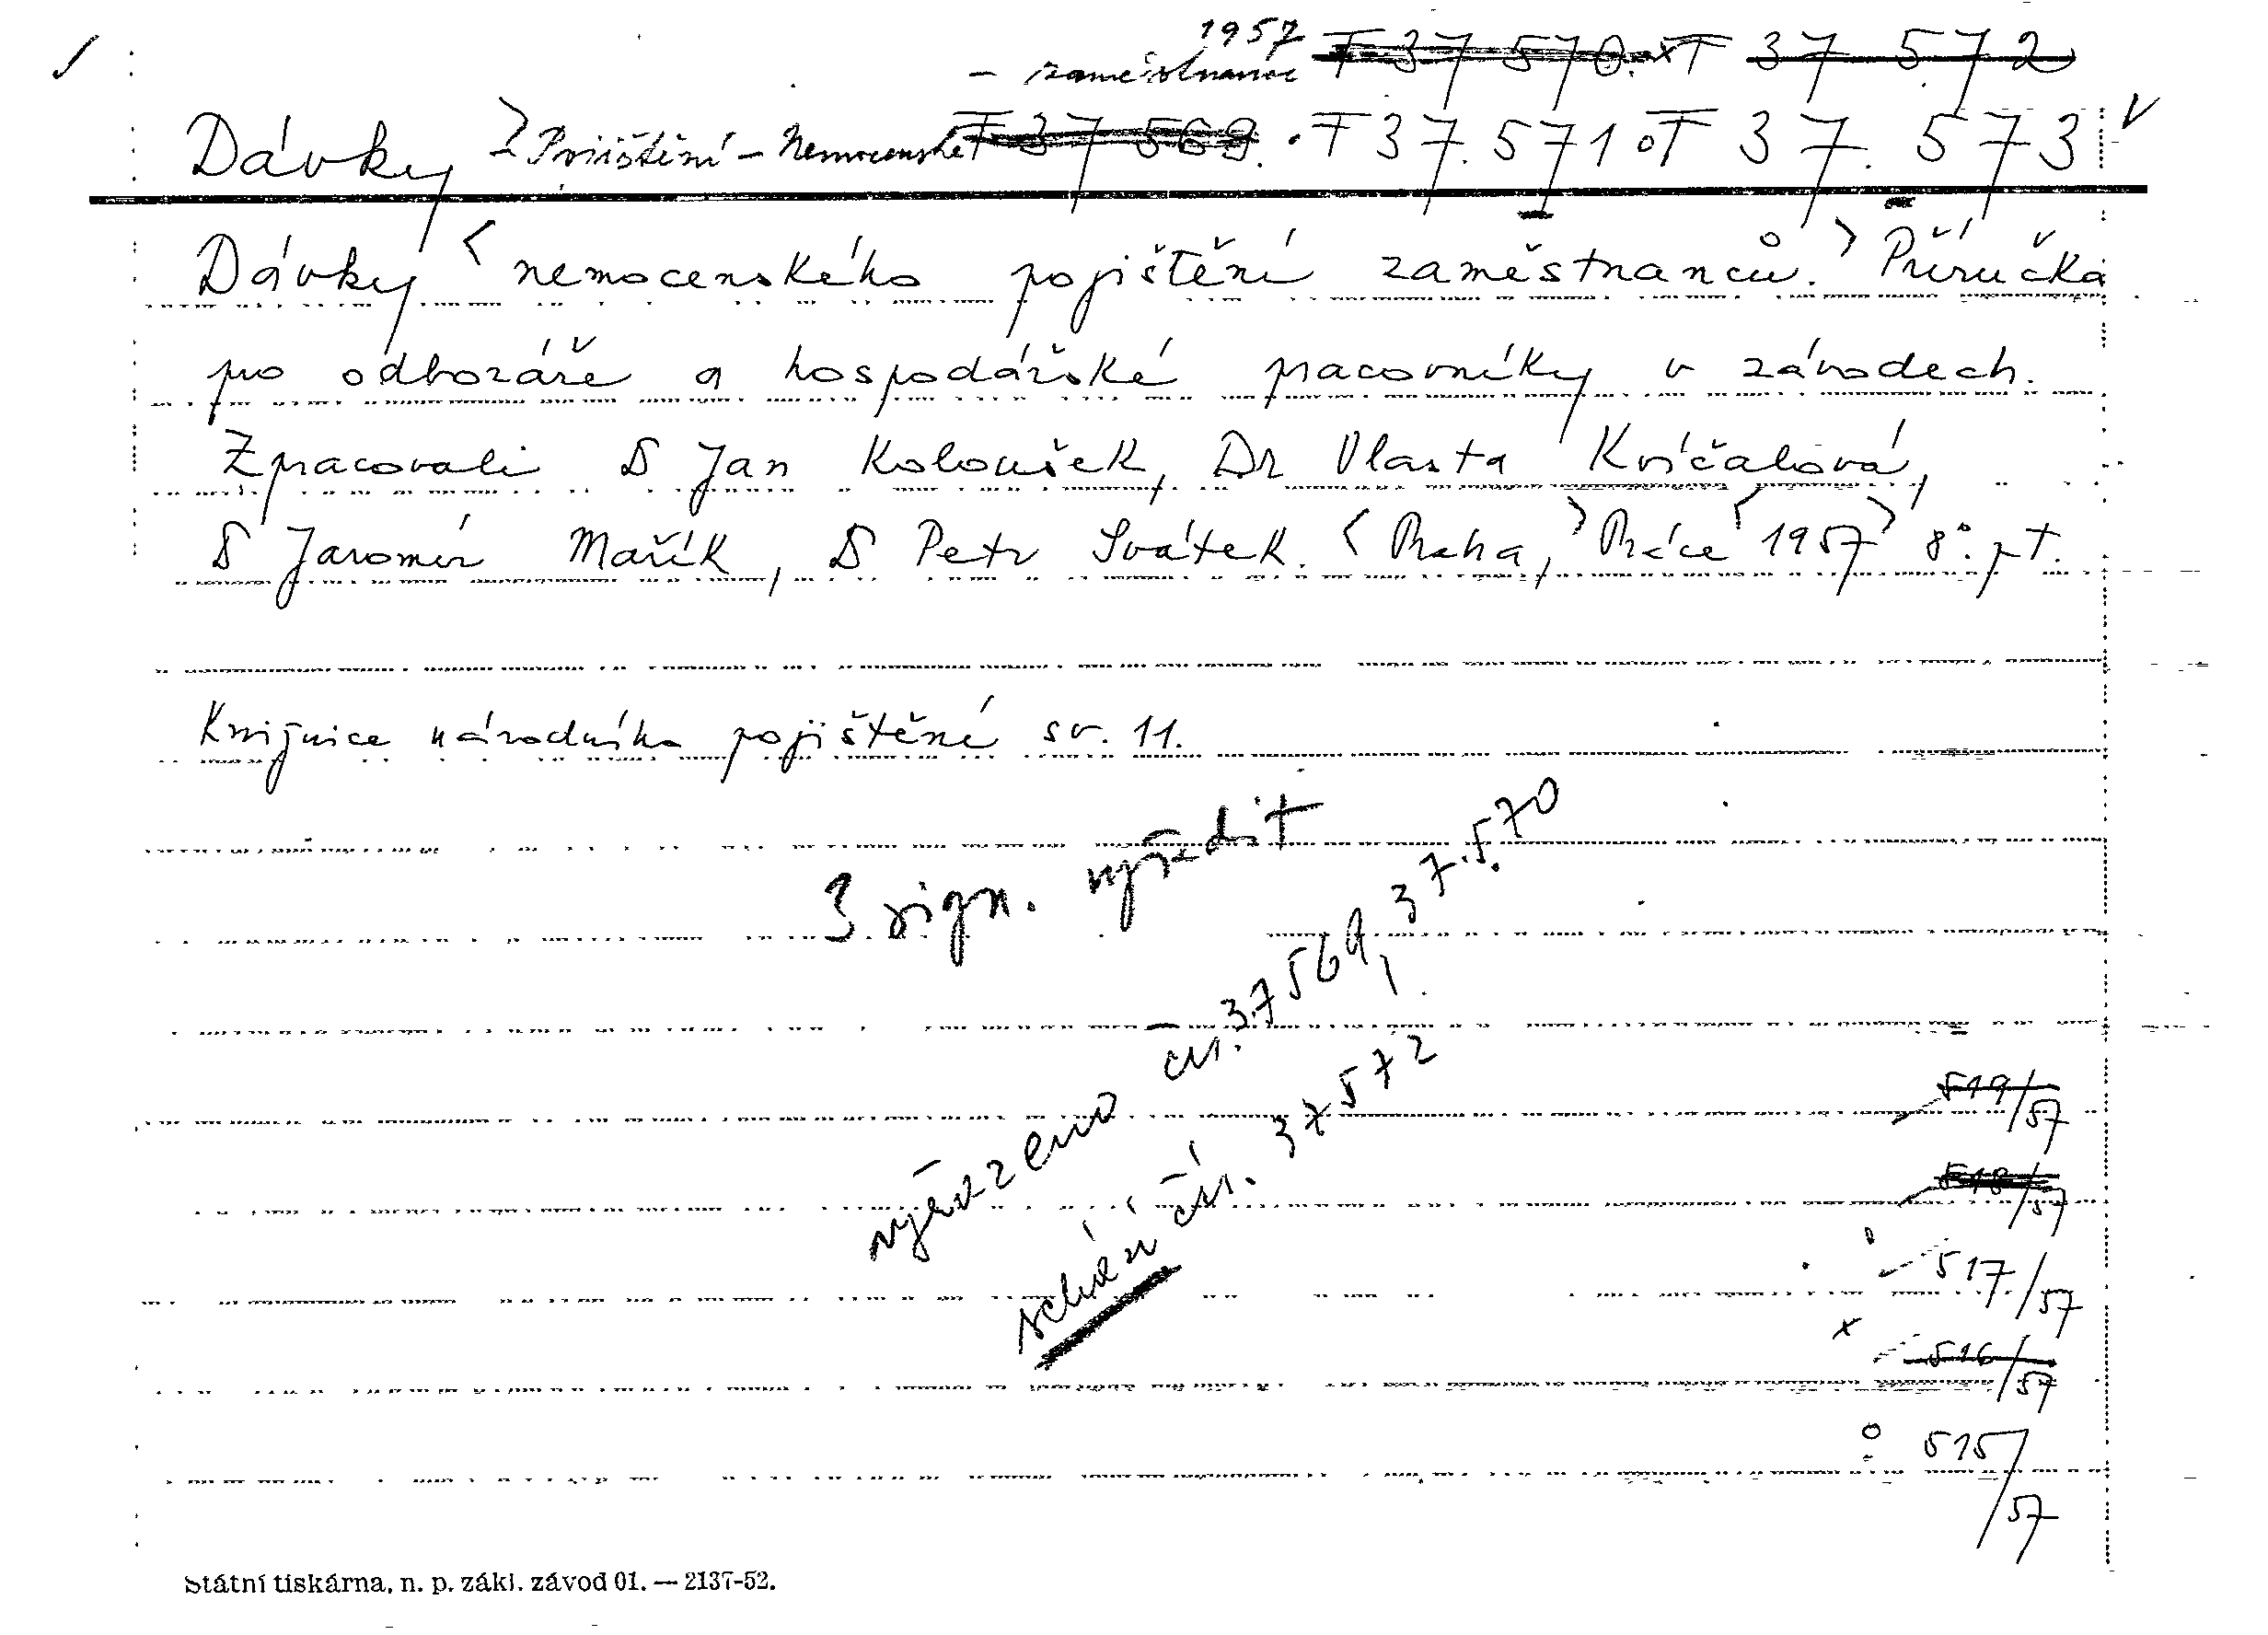 1957 T 37 570. x T 37 572
– zaměstnanec
Dávky Pojištění – Nemocenské T 37 569. • T 37.571 o T 37. 573
Dávky < nemocenského pojištění zaměstnanců. > Příručka
pro odboráře a hospodářské pracovníky v závodech.
Zpracovali D Jan Koloušek, Dr Vlasta Kvíčalová,
D Jaromír Mařík, D Petr Svátek. < Praha, > Práce < 1957 > 8°. pt.
Knižnice národního pojištění sv. 11.
3 sign. vyřadit
vyřazeno čís. 37569, 37.570
čís. 37572
519/57
518/57
517/57
x 516/57
o 515/57
Státní tiskárna, n. p. zákl. závod 01. — 2137-52.